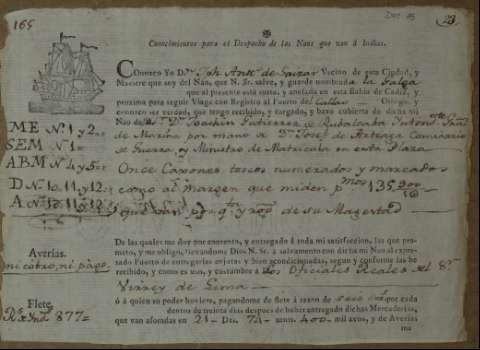 165
23
✠
Conocimientos para el Despacho de las Naos que van á Indias.
COnozco Yo Dn. Jph. Antº. de Vecino de esta Ciudad, y
Maestre que soy del Náo, que N. Sr. salve, y guarde nombrada la Galga
que al presente está surta, y anclada en esta Bahía de Cadiz, y
proxima para seguir Viage con Registro al Puerto del Callao Otorgo, y
conozco de verdad, que tengo recibido, y cargado, y baxo cubierta de dicha mi
Nao de Dn. Joachin Gutierrez de Rubalcaba
de Marina por mano de Dn. Josef de Arteaga Comisario
de Guerra, y Ministro de Matricula en esta Plaza
Once Caxones toscos numerados y marcados
como al margen que miden 135,200
que van pr. de su Magestad
ME Nº 1 y 2
SEM Nº 1
ABM Nº 4 y 5
D Nº 10. 11 y 12
A Nº 10. 11 y 12
De los quales me doy por contento, y entregado á toda mi satisfaccion, los que pro-
meto, y me obligo, llevandome Dios N. Sr. á salvamento con dicha mi Nao al expre-
sado Puerto de entregarlos enjutos, y bien acondicionados, segun y conforme los he
recibido, y como es uso, y costumbre á los Oficiales Reales
Virrey de Lima
ó á quien su poder huviere, pagandome de flete á razon de que cada
dentro de treinta dias despues de haber entregado dichas Mercaderías,
que van aforadas en 21 Din. 74 400 mil avos, y de Averías
ma
Averías.
ni cobro, ni pago
Flete.
877